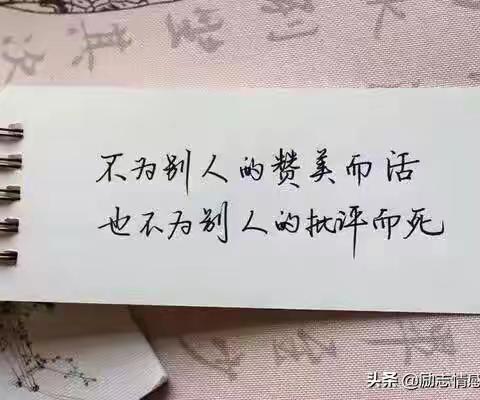 不为别人的赞美而活
也不为别人的批评而死
头条 @励志情感